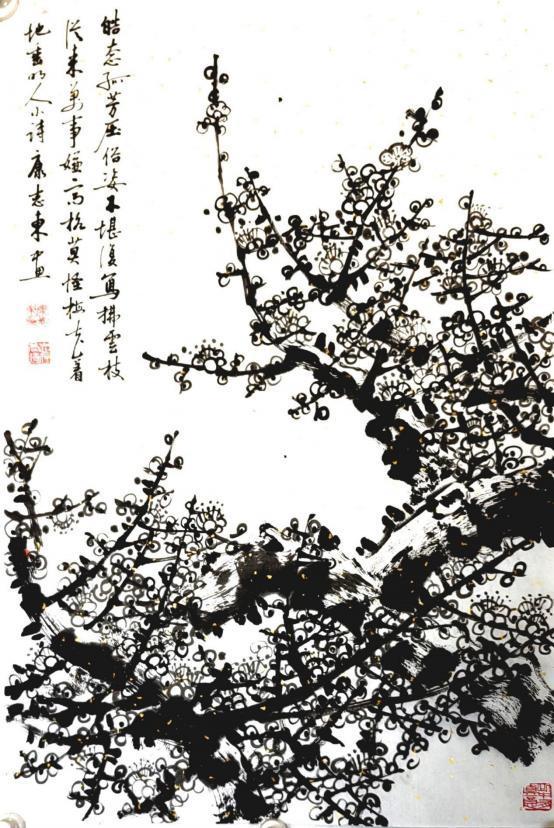 皓态孤芳压俗姿不堪復寫拂雲枝
從來萬事嫌高格莫怪梅花着
地垂明人小诗康志東画